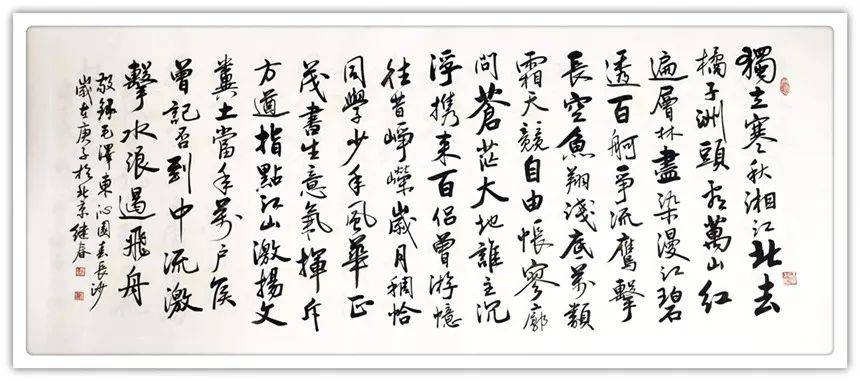 獨立寒秋湘江北去
橘子洲頭看萬山紅
遍層林盡染漫江碧
透百舸爭流鷹擊
長空魚翔淺底萬類
霜天競自由悵寥廓
問蒼茫大地誰主沉
浮携來百侣曾游憶
往昔崢嶸歲月稠恰
同學少年風華正
茂書生意氣揮斥
方遒指點江山激揚文
糞土當年萬户侯
曾記否到中流激
擊水浪遏飛舟
敬録毛澤東沁園春長沙
歲在庚子於北京继春